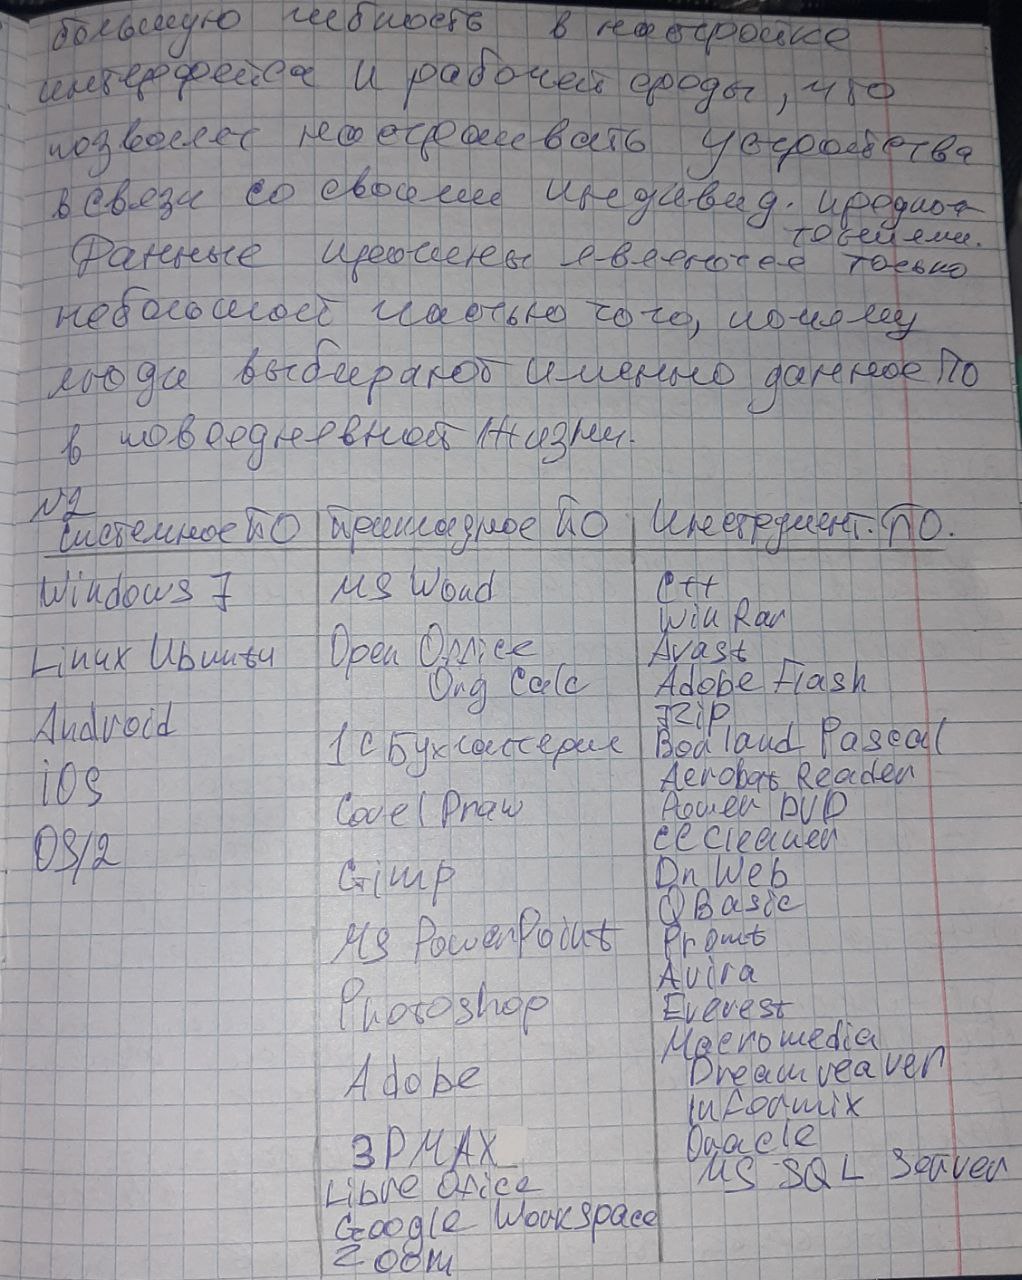 большую гибкость в настройке
интерфейса и рабочей среды, что
позволяет настраивать устройства
в связи со своими индивид. предпоч-
тениями.
Данные причины являются только
небольшой частью того, почему
люди выбирают именно данное ПО
в повседневной жизни.
№2
Системное ПО Прикладное ПО Инструмент. ПО.
Windows 7 MS Word C++
Win Rar
Linux Ubuntu Open Office Avast
Org Calc Adobe Flash
7Zip
Android 1C Бухгалтерия Borland Pascal
iOS Acrobat Reader
Corel Draw Power DVD
OS/2 CCCleaner
Gimp Dr Web
QBasic
MS PowerPoint Promt
Avira
Photoshop Everest
Macromedia
Adobe Dreamveaver
Informix
3DMAX Oracle
Libre Office MS SQL Server
Google Workspace
Zoom